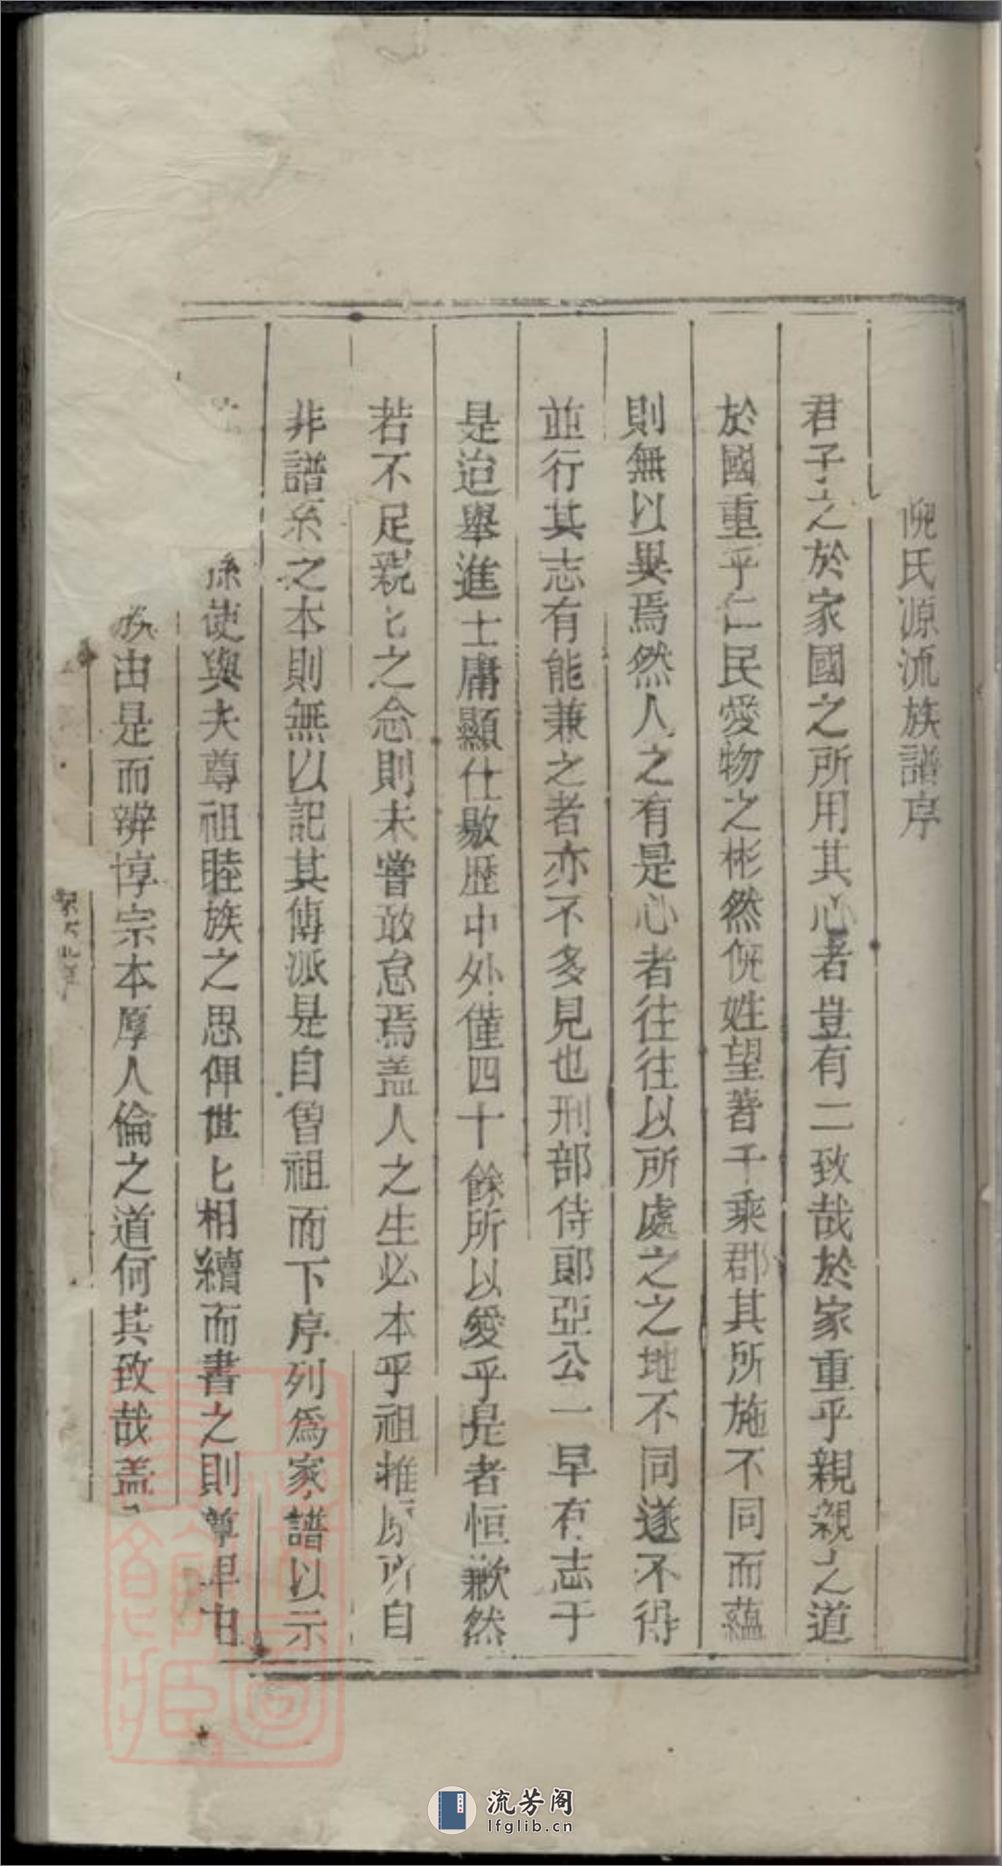 倪氏源流族譜序
君子之於家國之所用其心者豈有二致哉於家重乎親親之道
於國重乎仁民愛物之彬然倪姓望著千乘郡其所施不同而蘊
則無以異焉然人之有是心者往往以所處之之地不同遂不得
並行其志有能兼之者亦不多見也刑部侍郎亞公一早有志于
是迨舉進士庸顯仕敭歷中外僅四十餘所以愛乎是者恒歉然
若不足親匕之念則未嘗敢怠焉盖人之生必本乎祖推原所自
非譜系之本則無以記其傳派是自曾祖而下序列為家譜以示
孫使與夫尊祖睦族之思俾世匕相續而書之則尊卑由
族由是而辨惇宗本厚人倫之道何其致哉盖
流芳阁
lfglib.cn